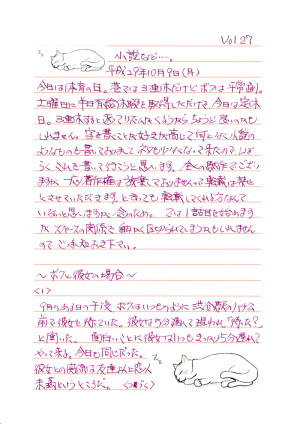 Vol 27
小説など…。
平成29年10月9日(月)
今日は体育の日。巷では3連休だけどボクは平常通り。
土曜日に半日有給休暇を取得しただけで、今日は定休
日。3連休すると返ってリズムくるうからちょうど良いのかも
しれません。字を書くことが好きが高じて何となく小説の
ようなものを書いておりまして ネタも少なくなって来たので、しば
らくそれを書いて行こうと思います。全くの駄作でござい
ますが 一応著作権は放棄しておりませんので転載は禁止
とさせていただきます。と言っても転載してくれる方なんて
いないと思いますが念のため。では1話目を始めます
が スペースの関係で細かく区切られてしまうかもしれませ
んので ご承知おき下さい。
〜ボクと彼女の場合〜
<1>
9月のある日の午後 ボクはいつものように渋谷駅のハチ公
前で彼女を待っていた。彼女は5分遅れて現われ「待った?」
と聞いた。面白いことに彼女はいつもきっかり5分遅れて
やって来る。今日も同じだった。
彼女との関係は友達以上恋人
未満というところだ。<つづく>